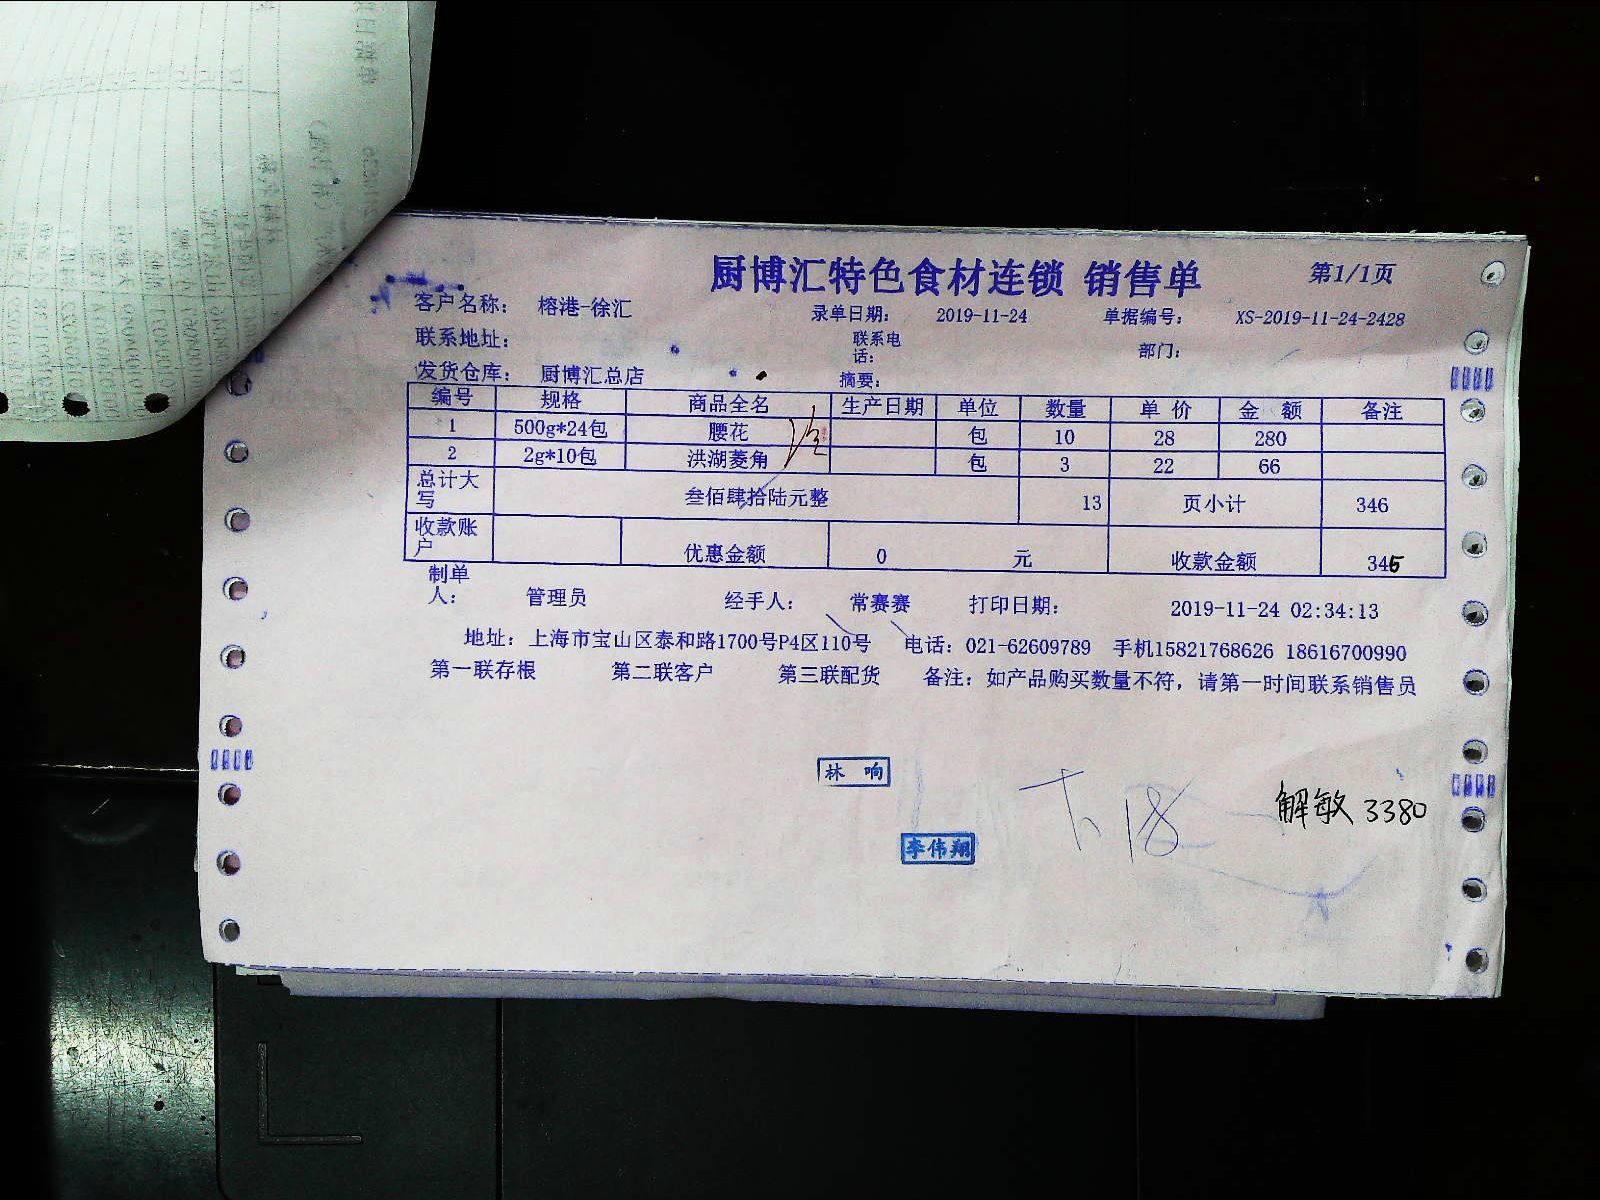 厨博汇特色食材连锁 销售单 第1/1页
客户名称： 榕港-徐汇 录单日期： 2019-11-24 单据编号： XS-2019-11-24-2428
联系地址： 联系电话： 部门：
发货仓库： 厨博汇总店 摘要：
编号 规格 商品全名 生产日期 单位 数量 单 价 金 额 备注
1 500g*24包 腰花 包 10 28 280
2 2g*10包 洪湖菱角 包 3 22 66
总计大写 叁佰肆拾陆元整 13 页小计 346
收款账户 优惠金额 0 元 收款金额 345
制单人： 管理员 经手人： 常赛赛 打印日期： 2019-11-24 02:34:13
地址：上海市宝山区泰和路1700号P4区110号 电话：021-62609789 手机15821768626 18616700990
第一联存根 第二联客户 第三联配货 备注：如产品购买数量不符，请第一时间联系销售员
林 响
下18
解敏 3380
李伟翔